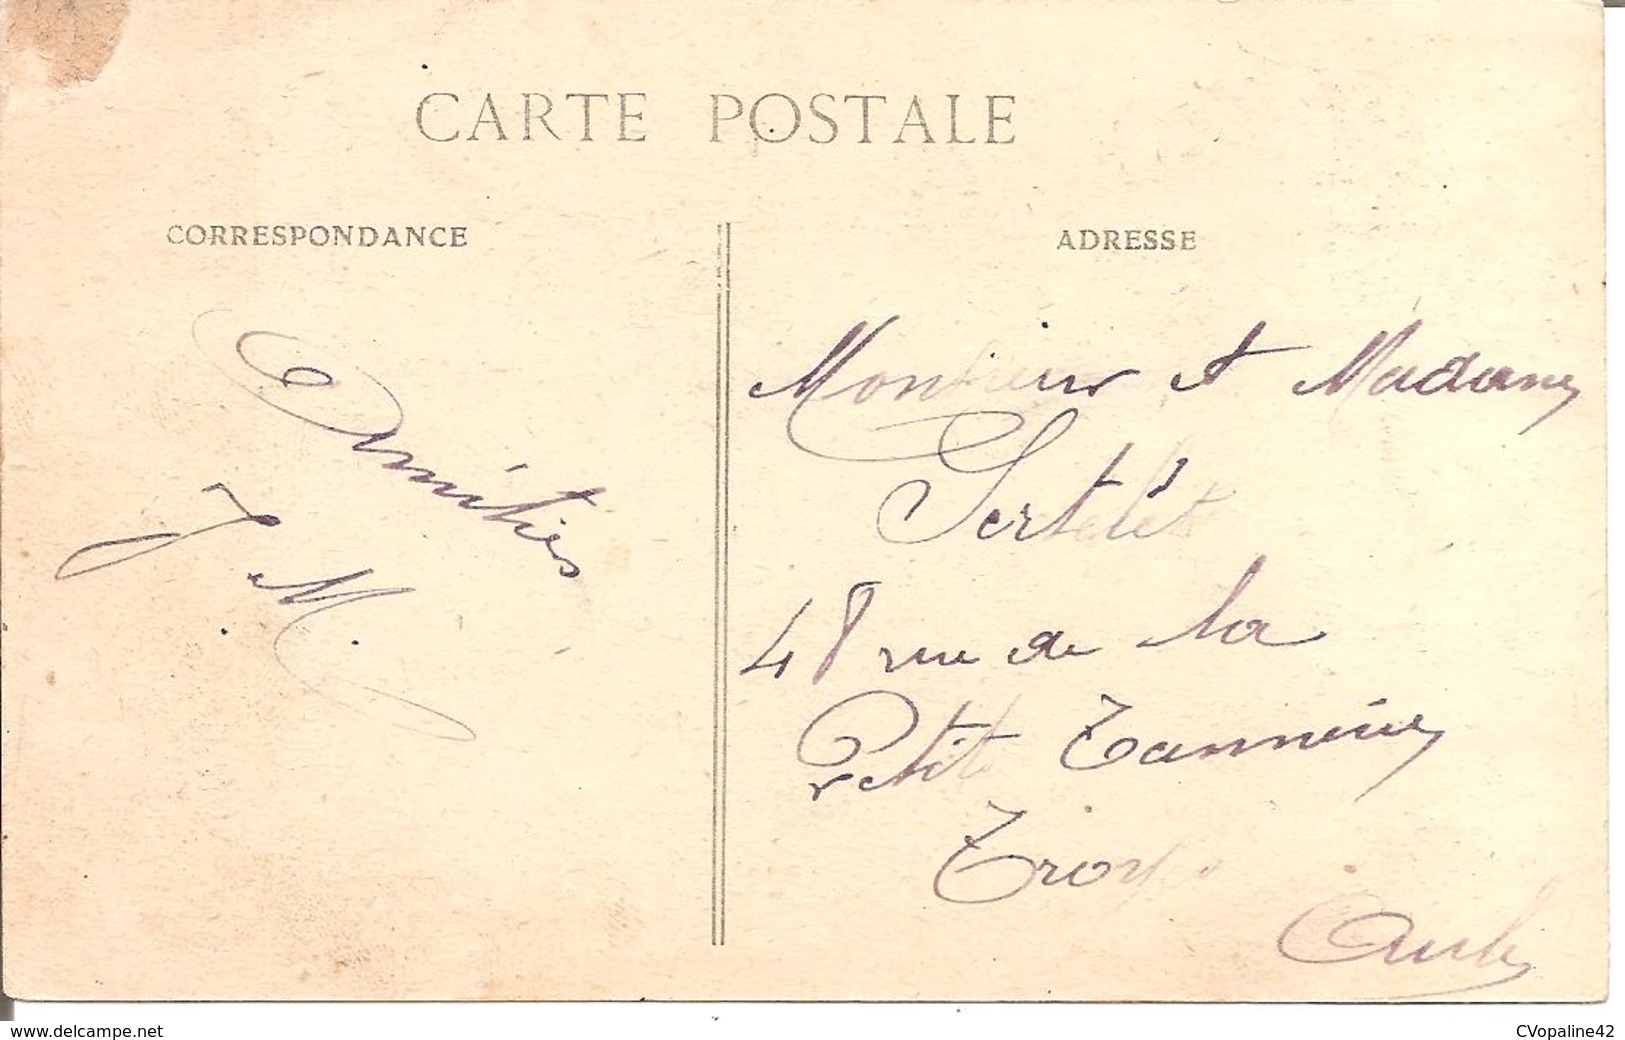 CARTE POSTALE
CORRESPONDANCE
Amitiés
J. M.
ADRESSE
Monsieur et Madame
Sertelet
48 rue de la
Petite Tannerie
Troyes
Aube
www.delcampe.net
CVopaline42